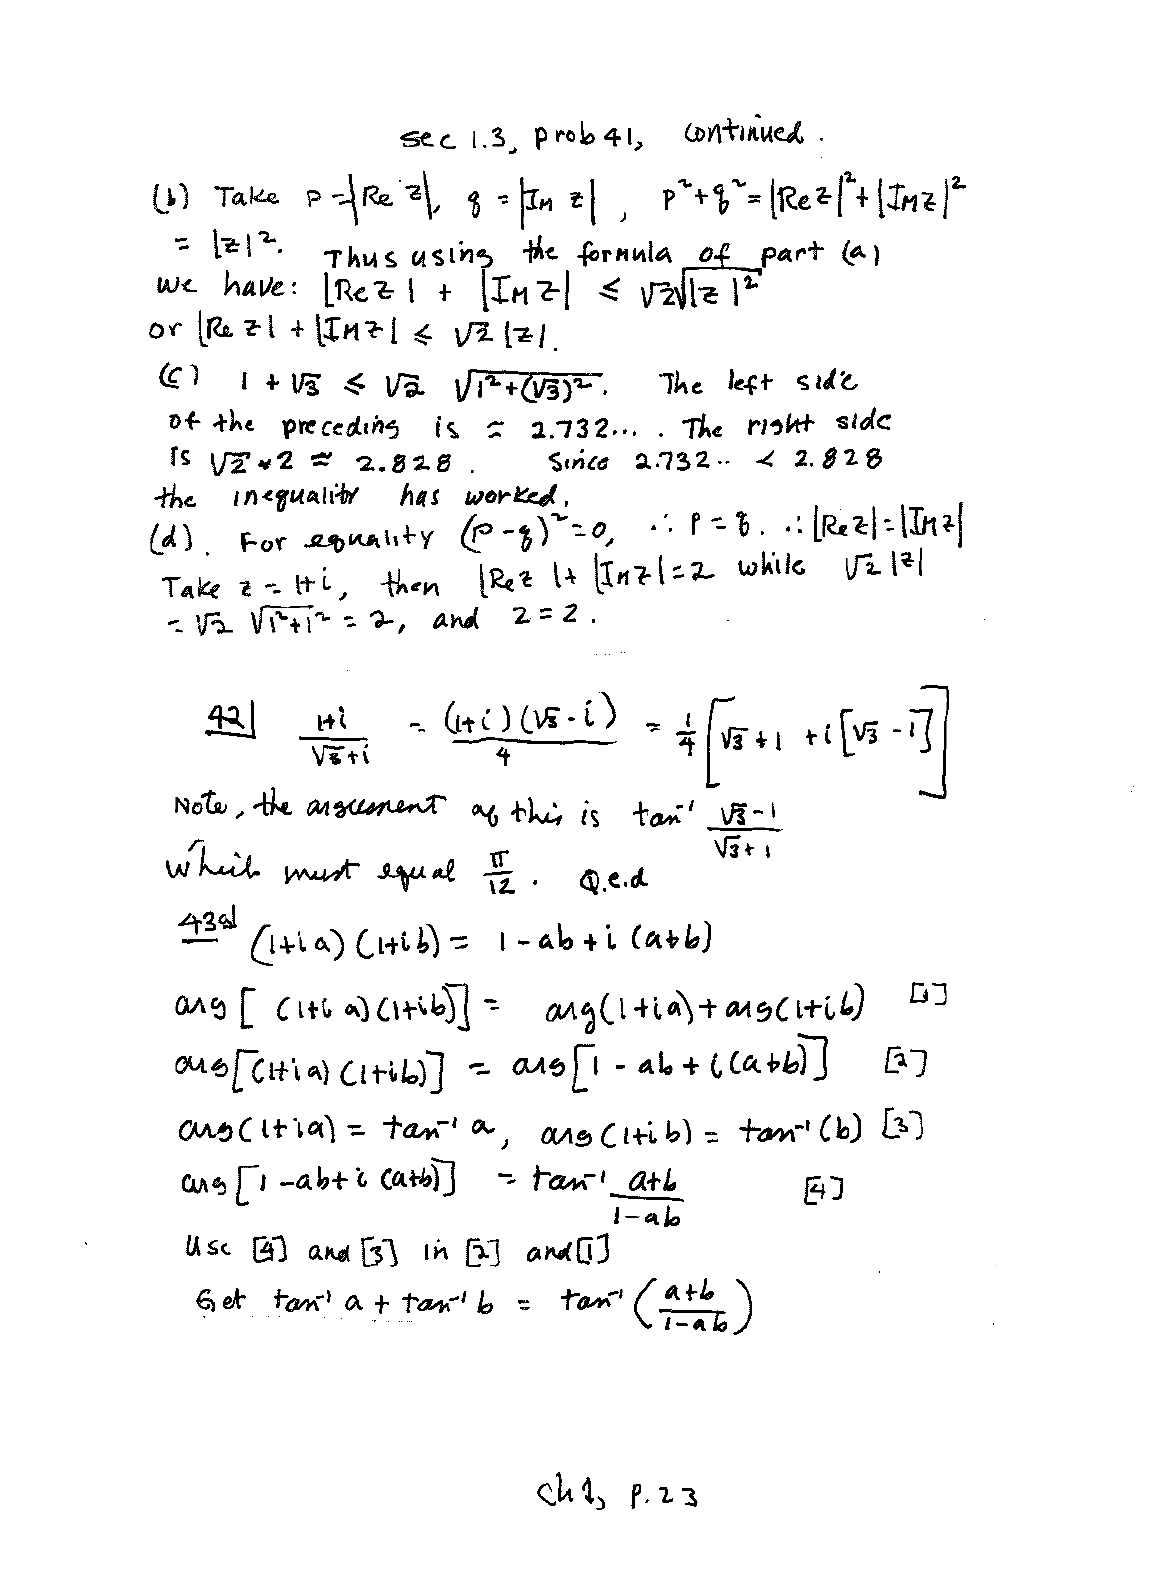 sec 1.3, prob 41, continued.
(b) Take p = |Re z|, q = |Im z|, p² + q² = |Re z|² + |Im z|²
= |z|². Thus using the formula of part (a)
we have: |Re z| + |Im z| ≤ √2 √|z|²
or |Re z| + |Im z| ≤ √2 |z|.
(c) 1 + √3 ≤ √2 √(1² + (√3)²). The left side
of the preceding is ≈ 2.732.... The right side
is √2 * 2 ≈ 2.828. Since 2.732.. < 2.828
the inequality has worked.
(d). For equality (p - q)² = 0, ∴ p = q. ∴ |Re z| = |Im z|
Take z = 1+i, then |Re z| + |Im z| = 2 while √2 |z|
= √2 √(1² + 1²) = 2, and 2 = 2.
42| (1+i)/(√3+i) = (1+i)(√3-i)/4 = 1/4 [√3+1 + i[√3-1]]
Note, the argument of this is tan⁻¹ (√3-1)/(√3+1)
which must equal π/12. Q.e.d
43a| (1+ia)(1+ib) = 1-ab+i(a+b)
arg[(1+ia)(1+ib)] = arg(1+ia) + arg(1+ib) [1]
arg[(1+ia)(1+ib)] = arg[1-ab+i(a+b)] [2]
arg(1+ia) = tan⁻¹ a, arg(1+ib) = tan⁻¹(b) [3]
arg[1-ab+i(a+b)] = tan⁻¹ (a+b)/(1-ab) [4]
Use [4] and [3] in [2] and [1]
Get tan⁻¹ a + tan⁻¹ b = tan⁻¹ ((a+b)/(1-ab))
ch 1, p. 23